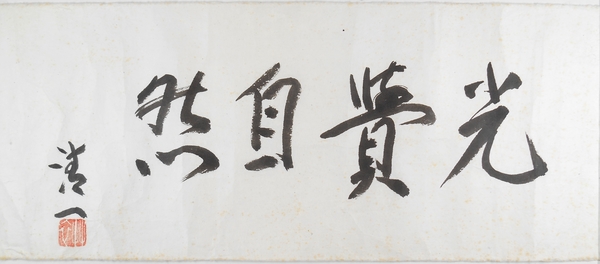 光自然
清一